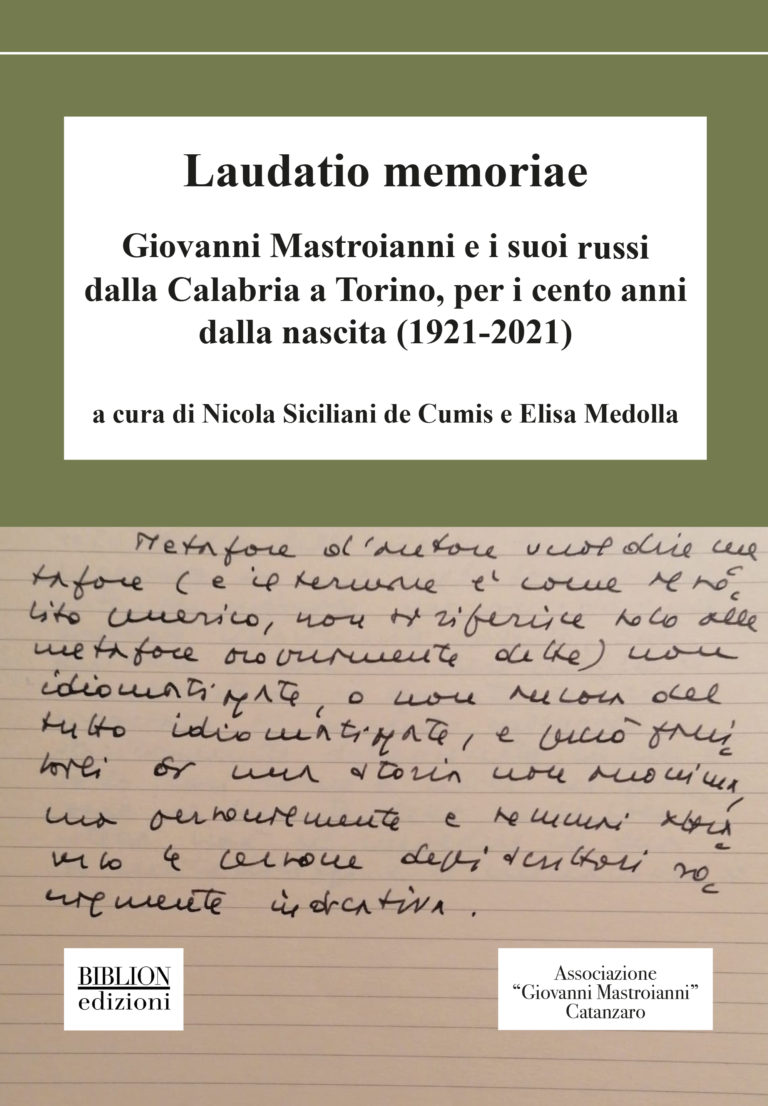 Laudatio memoriae
Giovanni Mastroianni e i suoi russi
dalla Calabria a Torino, per i cento anni
dalla nascita (1921-2021)
a cura di Nicola Siciliani de Cumis e Elisa Medolla
Metafore d'autore vuol dire me
tafore (e il termine è come
lito generico, non si riferisce solo alle
metafore propriamente dette) non
idiomatizzate, o non ancora del
tutto idiomatizzate, e perciò
di una storia non anonima,
ma personalmente e
le persone degli scrittori
indicativa.
BIBLION
edizioni
Associazione
“Giovanni Mastroianni”
Catanzaro